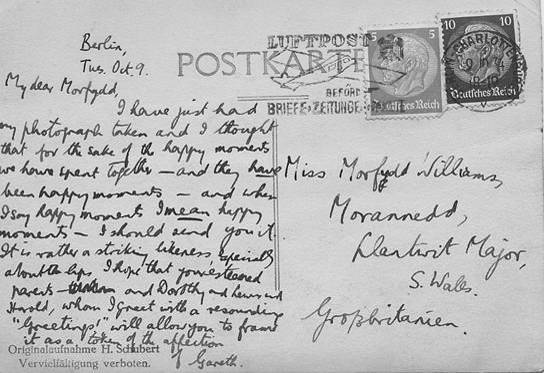 Berlin,
Tues. Oct. 9.
POSTKARTE
My dear Morfydd,
I have just had
my photograph taken and I thought
that for the sake of the happy moments
we have spent together – and they have
been happy moments – and when
I say happy moments I mean happy
moments – I should send you it.
It is rather a striking likeness, especially
about the lips. I hope that your esteemed
parents – and Dorothy and
Harold, whom I greet with a resounding
"Greetings", will allow you to frame
it as a token of the affection
of Gareth.
Originalaufnahme H. Schubert
Vervielfältigung verboten.
LUFTPOST
BEFÖRD
BRIEFE·ZEITUNGE
5 5
Deutsches Reich
10 10
Deutsches Reich
CHARLOTTE
Miss Morfydd Williams,
Morannedd,
Llantwit Major,
S. Wales.
Großbritanien.